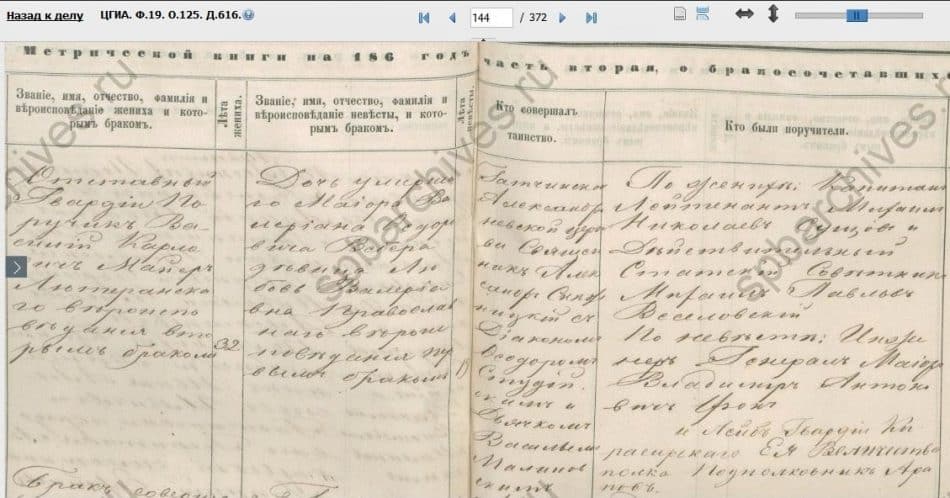 Назад к делу
ЦГИА. Ф.19. О.125. Д.616.
144 / 372
Метрической книги на 186 годъ
часть вторая, о бракосочетавших
Званіе, имя, отчество, фамилія и
вѣроисповѣданіе жениха и кото-
рымъ бракомъ.
Лѣта
жениха.
Званіе, имя, отчество, фамилія и
вѣроисповѣданіе невѣсты, и кото-
рымъ бракомъ.
Лѣта
невѣсты.
Кто совершалъ
таинство.
Кто были поручители.
Отставный
Гвардіи По
ручикъ Ва-
силій Карло
вичъ Майеръ
Лютеранска
го вѣроиспо
вѣданія вто
рымъ бракомъ
32
Дочь умерша
го Маіора Ва
леріана Ѳедор
овича
дѣвица Лю
бовь Валеріа
вна Православ
наго вѣроис
повѣданія пер
вымъ бракомъ
Гатчинской
Александро
невской церк
ви Священ
никъ Алек
сандръ
съ
Діакономъ
Ѳеодоромъ
Студит
скимъ и
Дьячкомъ
Василіемъ
Малинов
скимъ
По женихѣ: Капитанъ
Лейтенантъ Михаилъ
Николаевъ и
Дѣйствительный
Статскій Совѣтникъ
Михаилъ Павловъ
Веселовскій
По невѣстѣ: Инже
неръ Генералъ Маіоръ
Владиміръ Антоно
вичъ
и Лейбъ Гвардіи Ки
расирскаго Ея Величества
полка Подполковникъ Ара
повъ.
Бракъ
spbarchives.ru